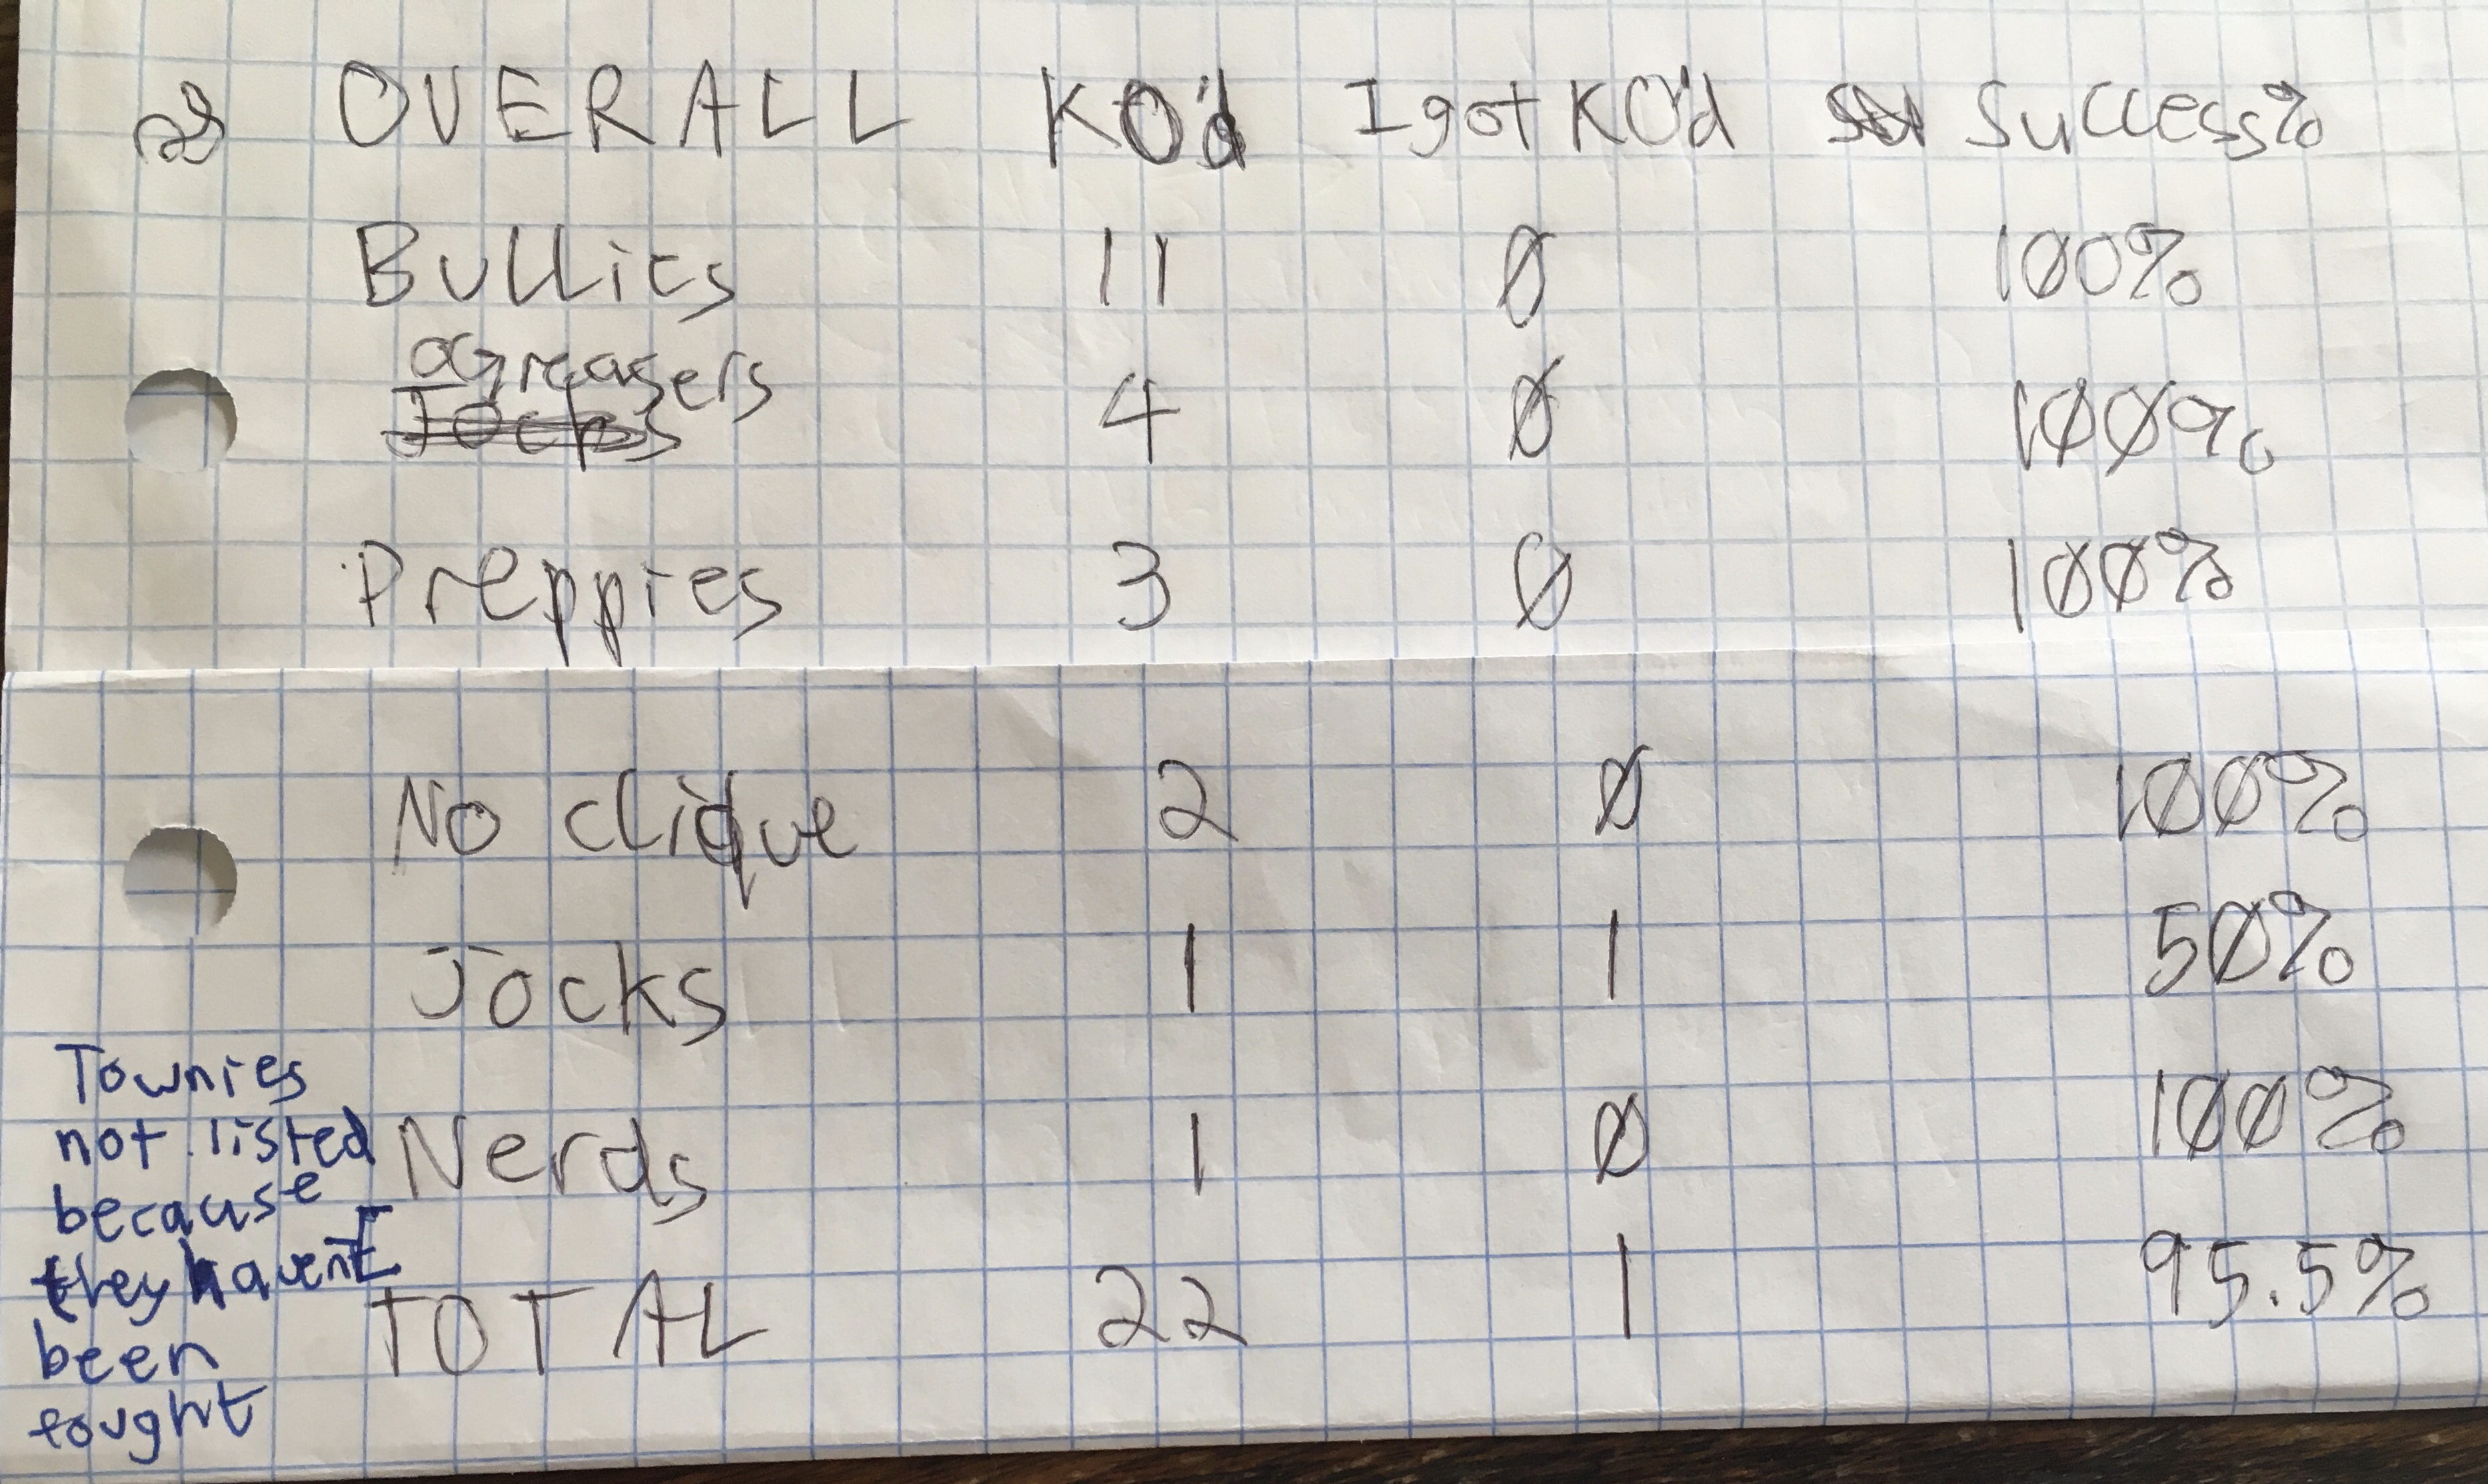 OVERALL KO'd I got KO'd Success%
Bullies 11 0 100%
Greasers 4 0 100%
Jocks
Preppies 3 0 100%
No clique 2 0 100%
Jocks 1 1 50%
Nerds 1 0 100%
TOTAL 22 1 95.5%
Townies
not listed
because
they havent
been
fought